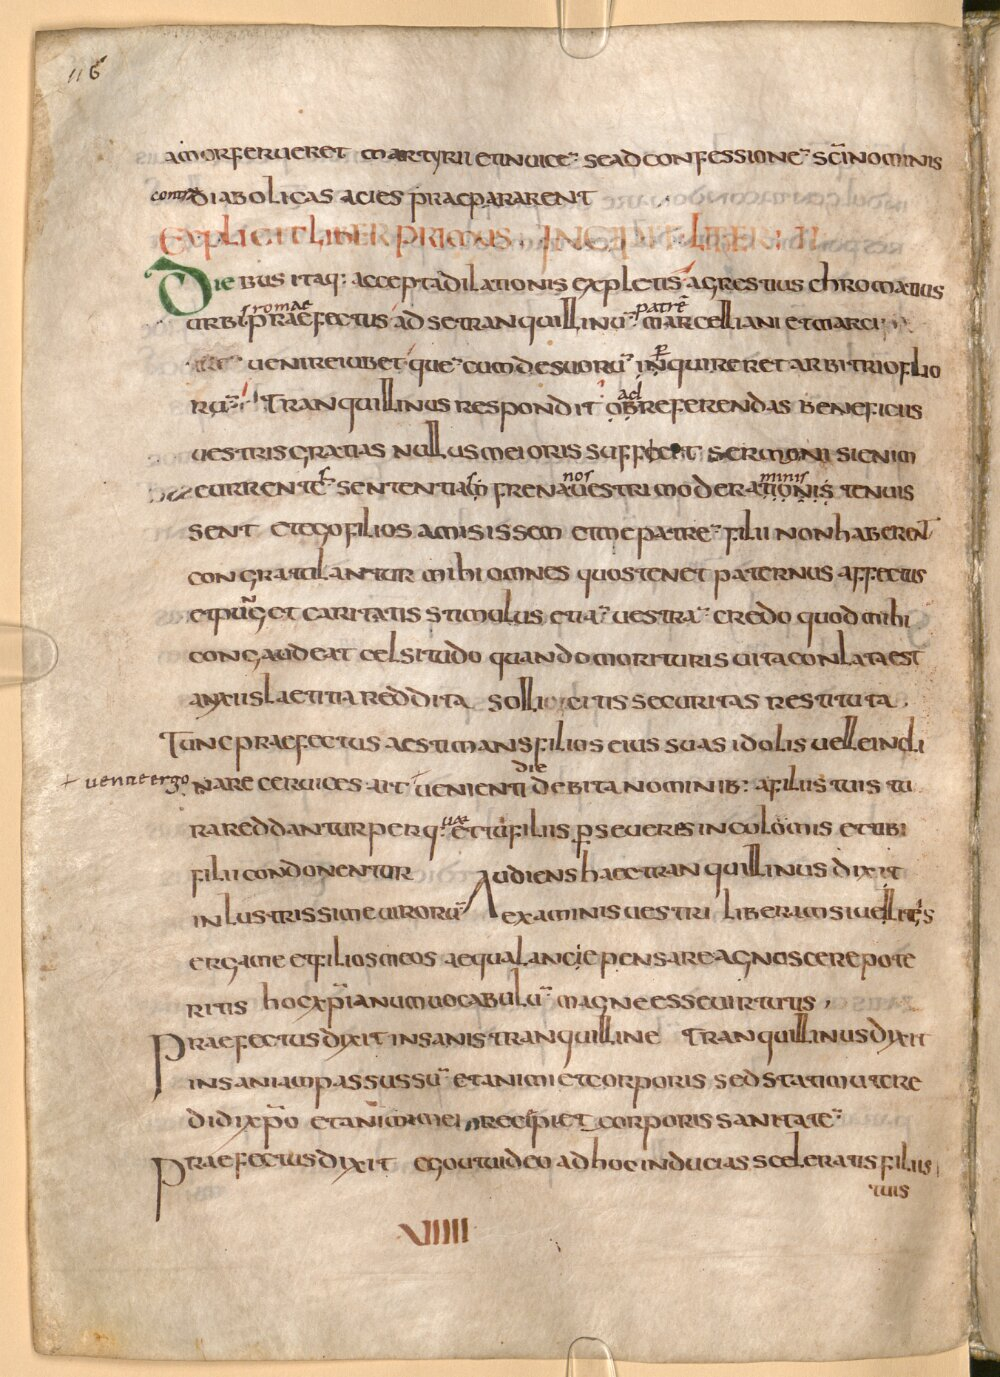 116
amor ferueret martyrii etinuice˜ sead confessione˜ sc̄i nominis
contra diabolicas acies praepararent
Explicit liber primus . Incipit liber II
Diebus itaq: accepta dilationis expletis agrestius chromatius
urbis romae praefectus ad se tranquillinu˜ patrē marcelliani et marci
uenire iubet que˜ cum de suoru˜ inquireret arbitrio filio
ru˜ Tranquillinus respondit ob ad referendas beneficiis
uestris gratias nullus mei oris sufficit sermo ni si enim
currentes sententias frena uestri nos moderationis minis tenuis
sent et ego filios amisissem et me patre˜ filii non haberent
congratulantur mihi omnes quos tenet paternus affectus
et pūget caritatis stimulus etia˜ uestra˜ credo quod mihi
congaudeat celsitudo quando morituris uita conlata est
anxiis laetitia reddita sollicitis securitas restituta .
Tunc praefectus aestimans filios eius suas idolis uelle incli
+ uenite ergo
nare ceruices ait + uenienti die debita nominib: a filiis tuis tu
ra reddantur per q: uae et tu filiis perseueres incolomis et tibi
filii condonentur Audiens haec tranquillinus dixit
inlustrissime uiroru˜ examinis uestri libramsi uellitis
erga me et filios meos aequa lancie pensare agnoscere pote
ritis hoc xp̄ianum uocabulu˜ magne esse uirtutis ,
Praefectus dixit insanis tranquilline Tranquillinus dixit
insaniam passus su˜ et animi et corporis sed statim ut cre
didi xp̄o et animi mei recipiet corporis sanitate˜
Praefectus dixit ego ut uideo ad hoc inducias sceleratis filiis
tuis
VIIII